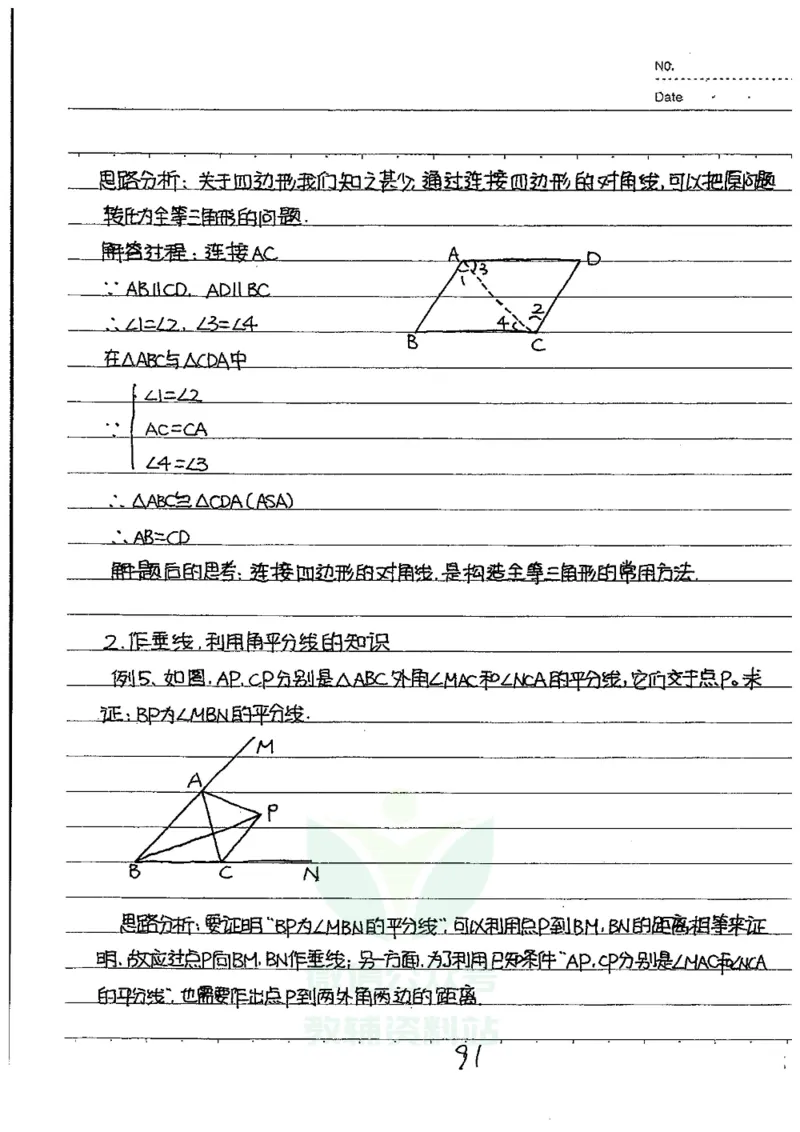 NO.
Date
思路分析：关于四边形我们知之甚少，通过连接四边形的对角线，可以把原问题
转化为全等三角形的问题．
解答过程：连接AC
∵AB∥CD，AD∥BC
∴∠1=∠2，∠3=∠4
在△ABC与△CDA中
∠1=∠2
∵ AC=CA
∠4=∠3
∴△ABC≌△CDA(ASA)
∴AB=CD
A D
3
1
2
4
B C
解题后的思考：连接四边形的对角线，是构造全等三角形的常用方法．
2.作垂线，利用角平分线的知识
例5、如图，AP，CP分别是△ABC外角∠MAC和∠NCA的平分线，它们交于点P。求
证：BP为∠MBN的平分线．
M
A
P
B C N
思路分析：要证明“BP为∠MBN的平分线”，可以利用点P到BM，BN的距离相等来证
明，故应过点P向BM，BN作垂线；另一方面，为了利用已知条件“AP，CP分别是∠MAC和∠NCA
的平分线”，也需要作出点P到两外角两边的距离．
微信公众号
教辅资料站
91